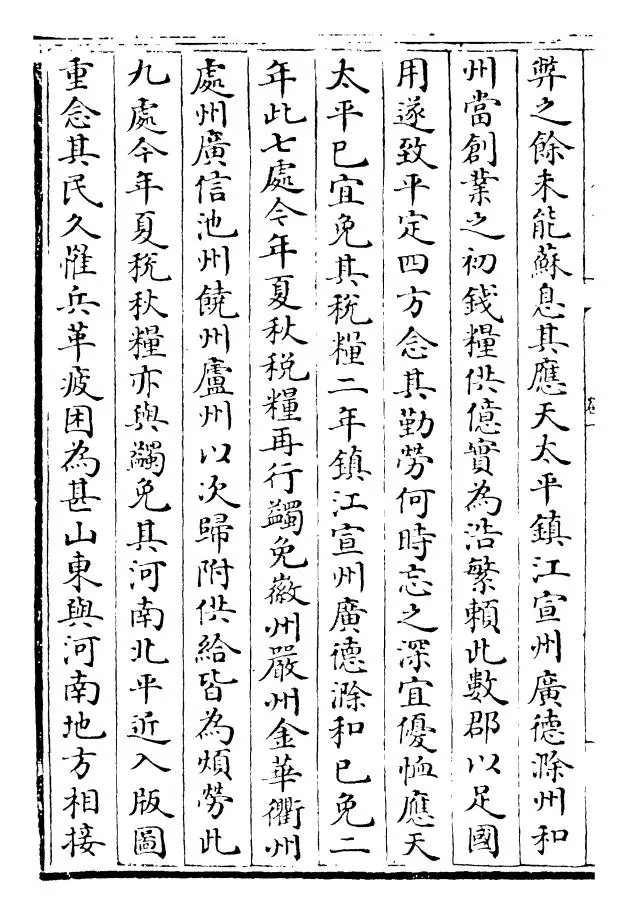 弊之餘未能蘇息其應天太平鎮江宣州廣德滁州和
州當創業之初錢糧供億實為浩繁賴此數郡以足國
用遂致平定四方念其勤勞何時忘之深宜優恤應天
太平已宜免其稅糧二年鎮江宣州廣德滁和已免二
年此七處今年夏秋稅糧再行蠲免徽州嚴州金華衢州
處州廣信池州饒州廬州以次歸附供給皆為煩勞此
九處今年夏稅秋糧亦與蠲免其河南北平近入版圖
重念其民久罹兵革疲困為甚山東與河南地方相接